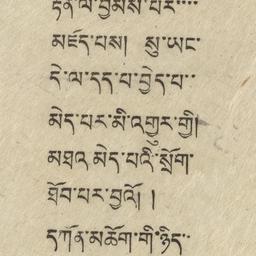 རྟེན་ལ་བྱམས་པར་
མཛོད་པས།  སུ་ཡང་
དེ་ལ་དད་པ་བྱེད་པ་
མེད་པར་མི་འགྱུར་གྱི།
མཐའ་མེད་པའི་སྲོག་
ཐོབ་པར་བྱའོ། །
དཀོན་མཆོག་གི་ཉིད་